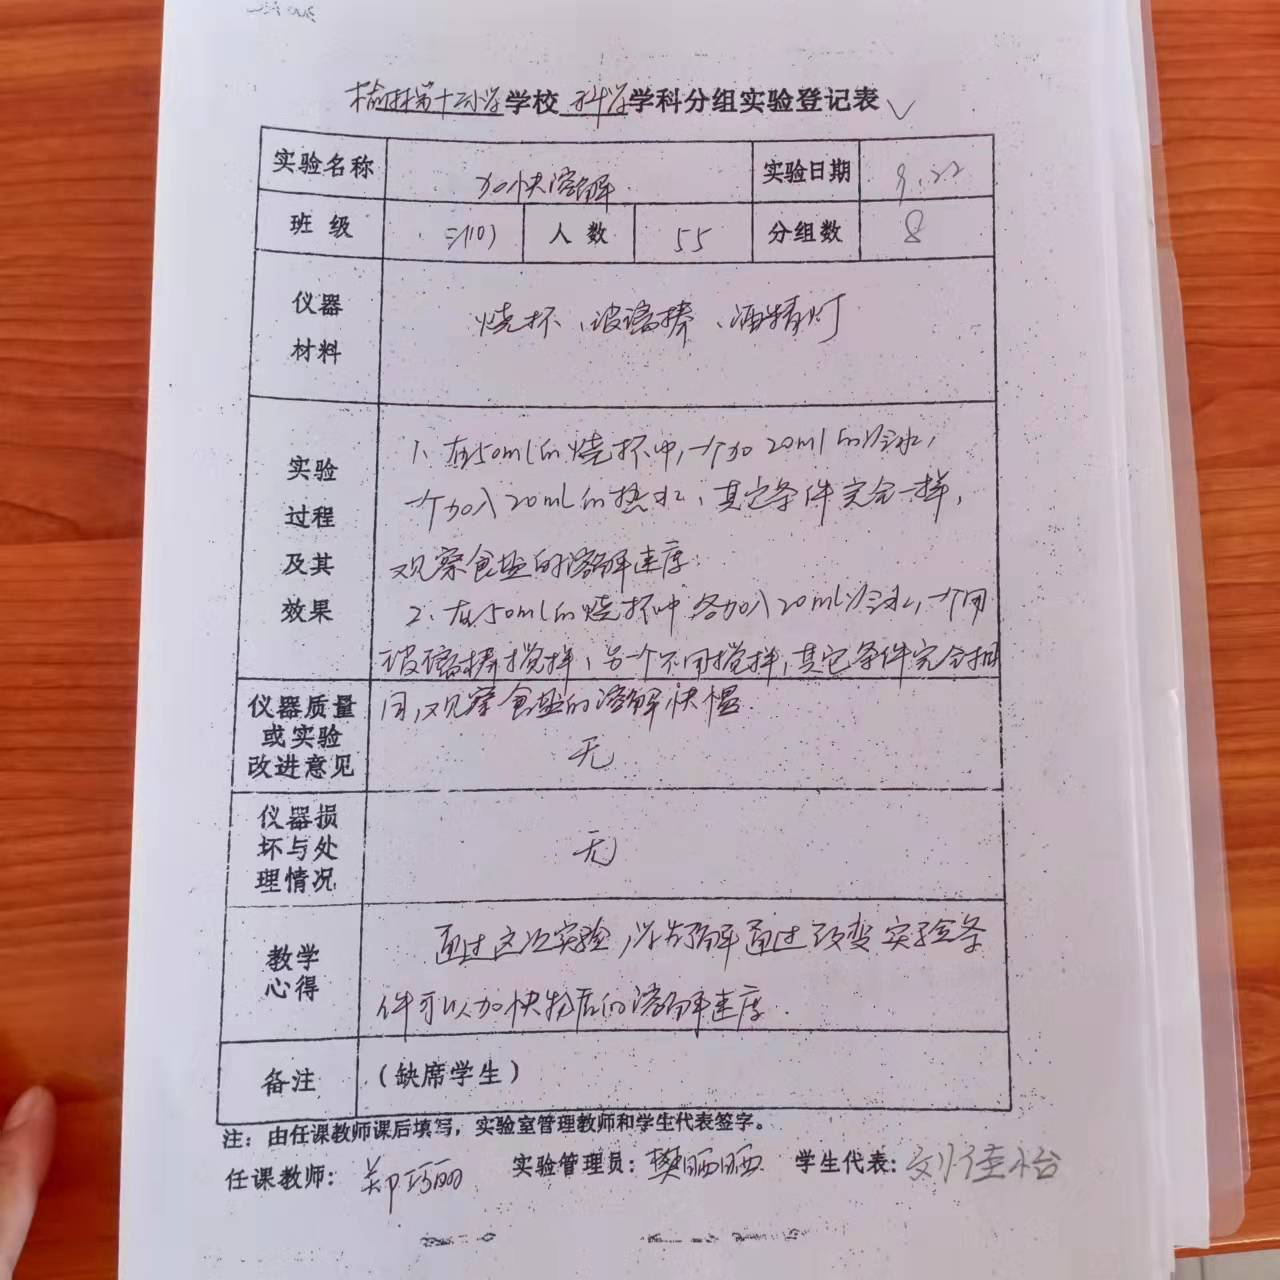 榆林第十二小学学校 科学学科分组实验登记表
实验名称 加快溶解 实验日期 9.22
班 级 三(10) 人 数 55 分组数 8
仪器
材料
烧杯、玻璃棒、酒精灯
实验
过程
及其
效果
1、在50ml的烧杯中,一个加20ml的冷水,
一个加入20ml的热水,其它条件完全一样,
观察食盐的溶解速度.
2、在50ml的烧杯中各加入20ml冷水,一个用
玻璃棒搅拌,另一个不用搅拌,其它条件完全相
同,观察食盐的溶解快慢.
仪器质量
或实验
改进意见
无
仪器损
坏与处
理情况
无
教学
心得
通过这次实验,学生了解通过改变实验条
件可以加快物质的溶解速度.
备注 (缺席学生)
注:由任课教师课后填写,实验室管理教师和学生代表签字。
任课教师: 郑巧丽 实验管理员: 樊晒晒 学生代表: 刘佳怡